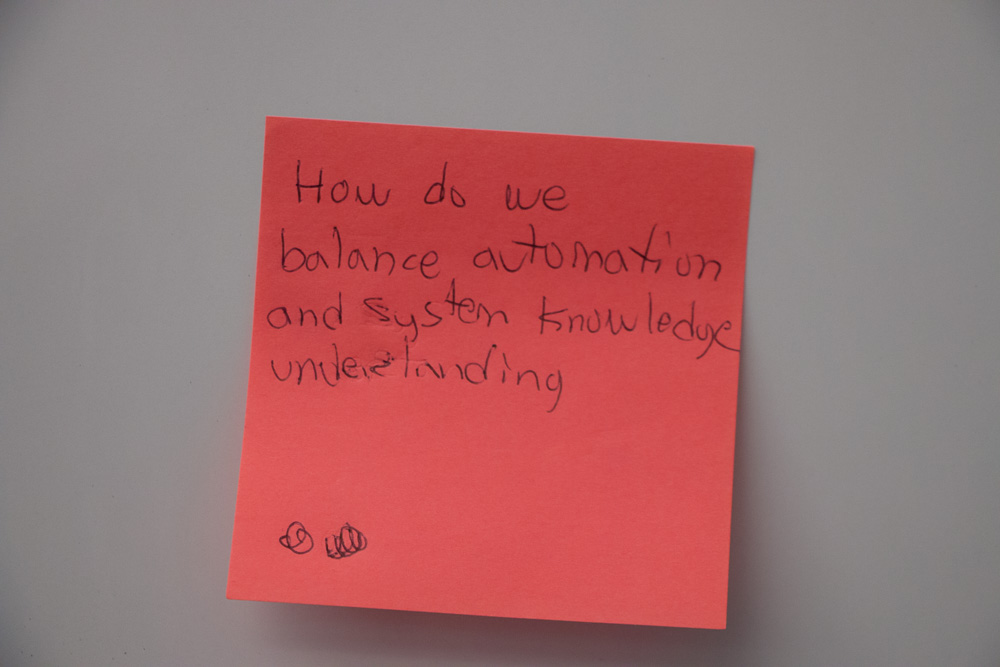 How do we
balance automation
and system knowledge
understanding